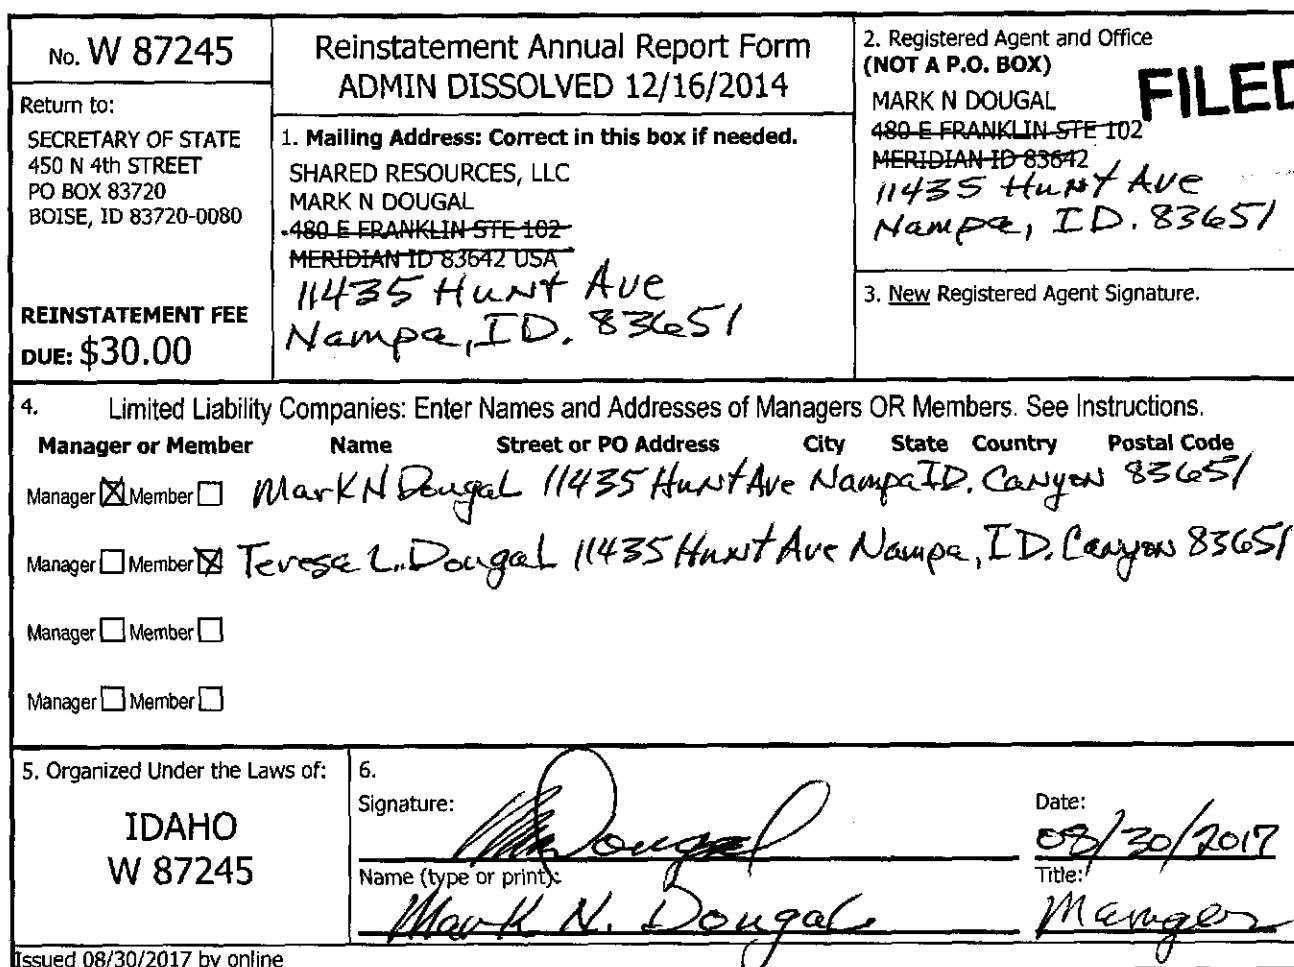 No. W 87245
Return to:
SECRETARY OF STATE
450 N 4th STREET
PO BOX 83720
BOISE, ID 83720-0080
REINSTATEMENT FEE
DUE: $30.00
Reinstatement Annual Report Form
ADMIN DISSOLVED 12/16/2014
1. Mailing Address: Correct in this box if needed.
SHARED RESOURCES, LLC
MARK N DOUGAL
480 E FRANKLIN STE 102
MERIDIAN ID 83642 USA
11435 Hunt Ave
Nampa, ID. 83651
2. Registered Agent and Office
(NOT A P.O. BOX)
FILED
MARK N DOUGAL
480 E FRANKLIN STE 102
MERIDIAN ID 83642
11435 Hunt Ave
Nampa, ID. 83651
3. New Registered Agent Signature.
4. Limited Liability Companies: Enter Names and Addresses of Managers OR Members. See Instructions.
Manager or Member Name Street or PO Address City State Country Postal Code
Manager Member Mark N Dougal 11435 Hunt Ave Nampa ID. Canyon 83651
Manager Member Teresa L. Dougal 11435 Hunt Ave Nampa, ID. Canyon 83651
Manager Member
Manager Member
5. Organized Under the Laws of:
IDAHO
W 87245
6.
Signature: Dougal
Date:
08/30/2017
Name (type or print):
Mark N. Dougal
Title:
Manager
Issued 08/30/2017 by online